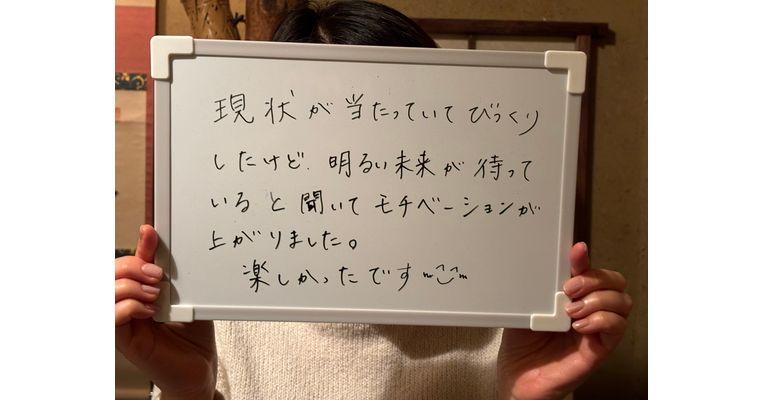 現状が当たっていてびっくり
したけど、明るい未来が待って
いると聞いてモチベーションが
上がりました。
楽しかったです